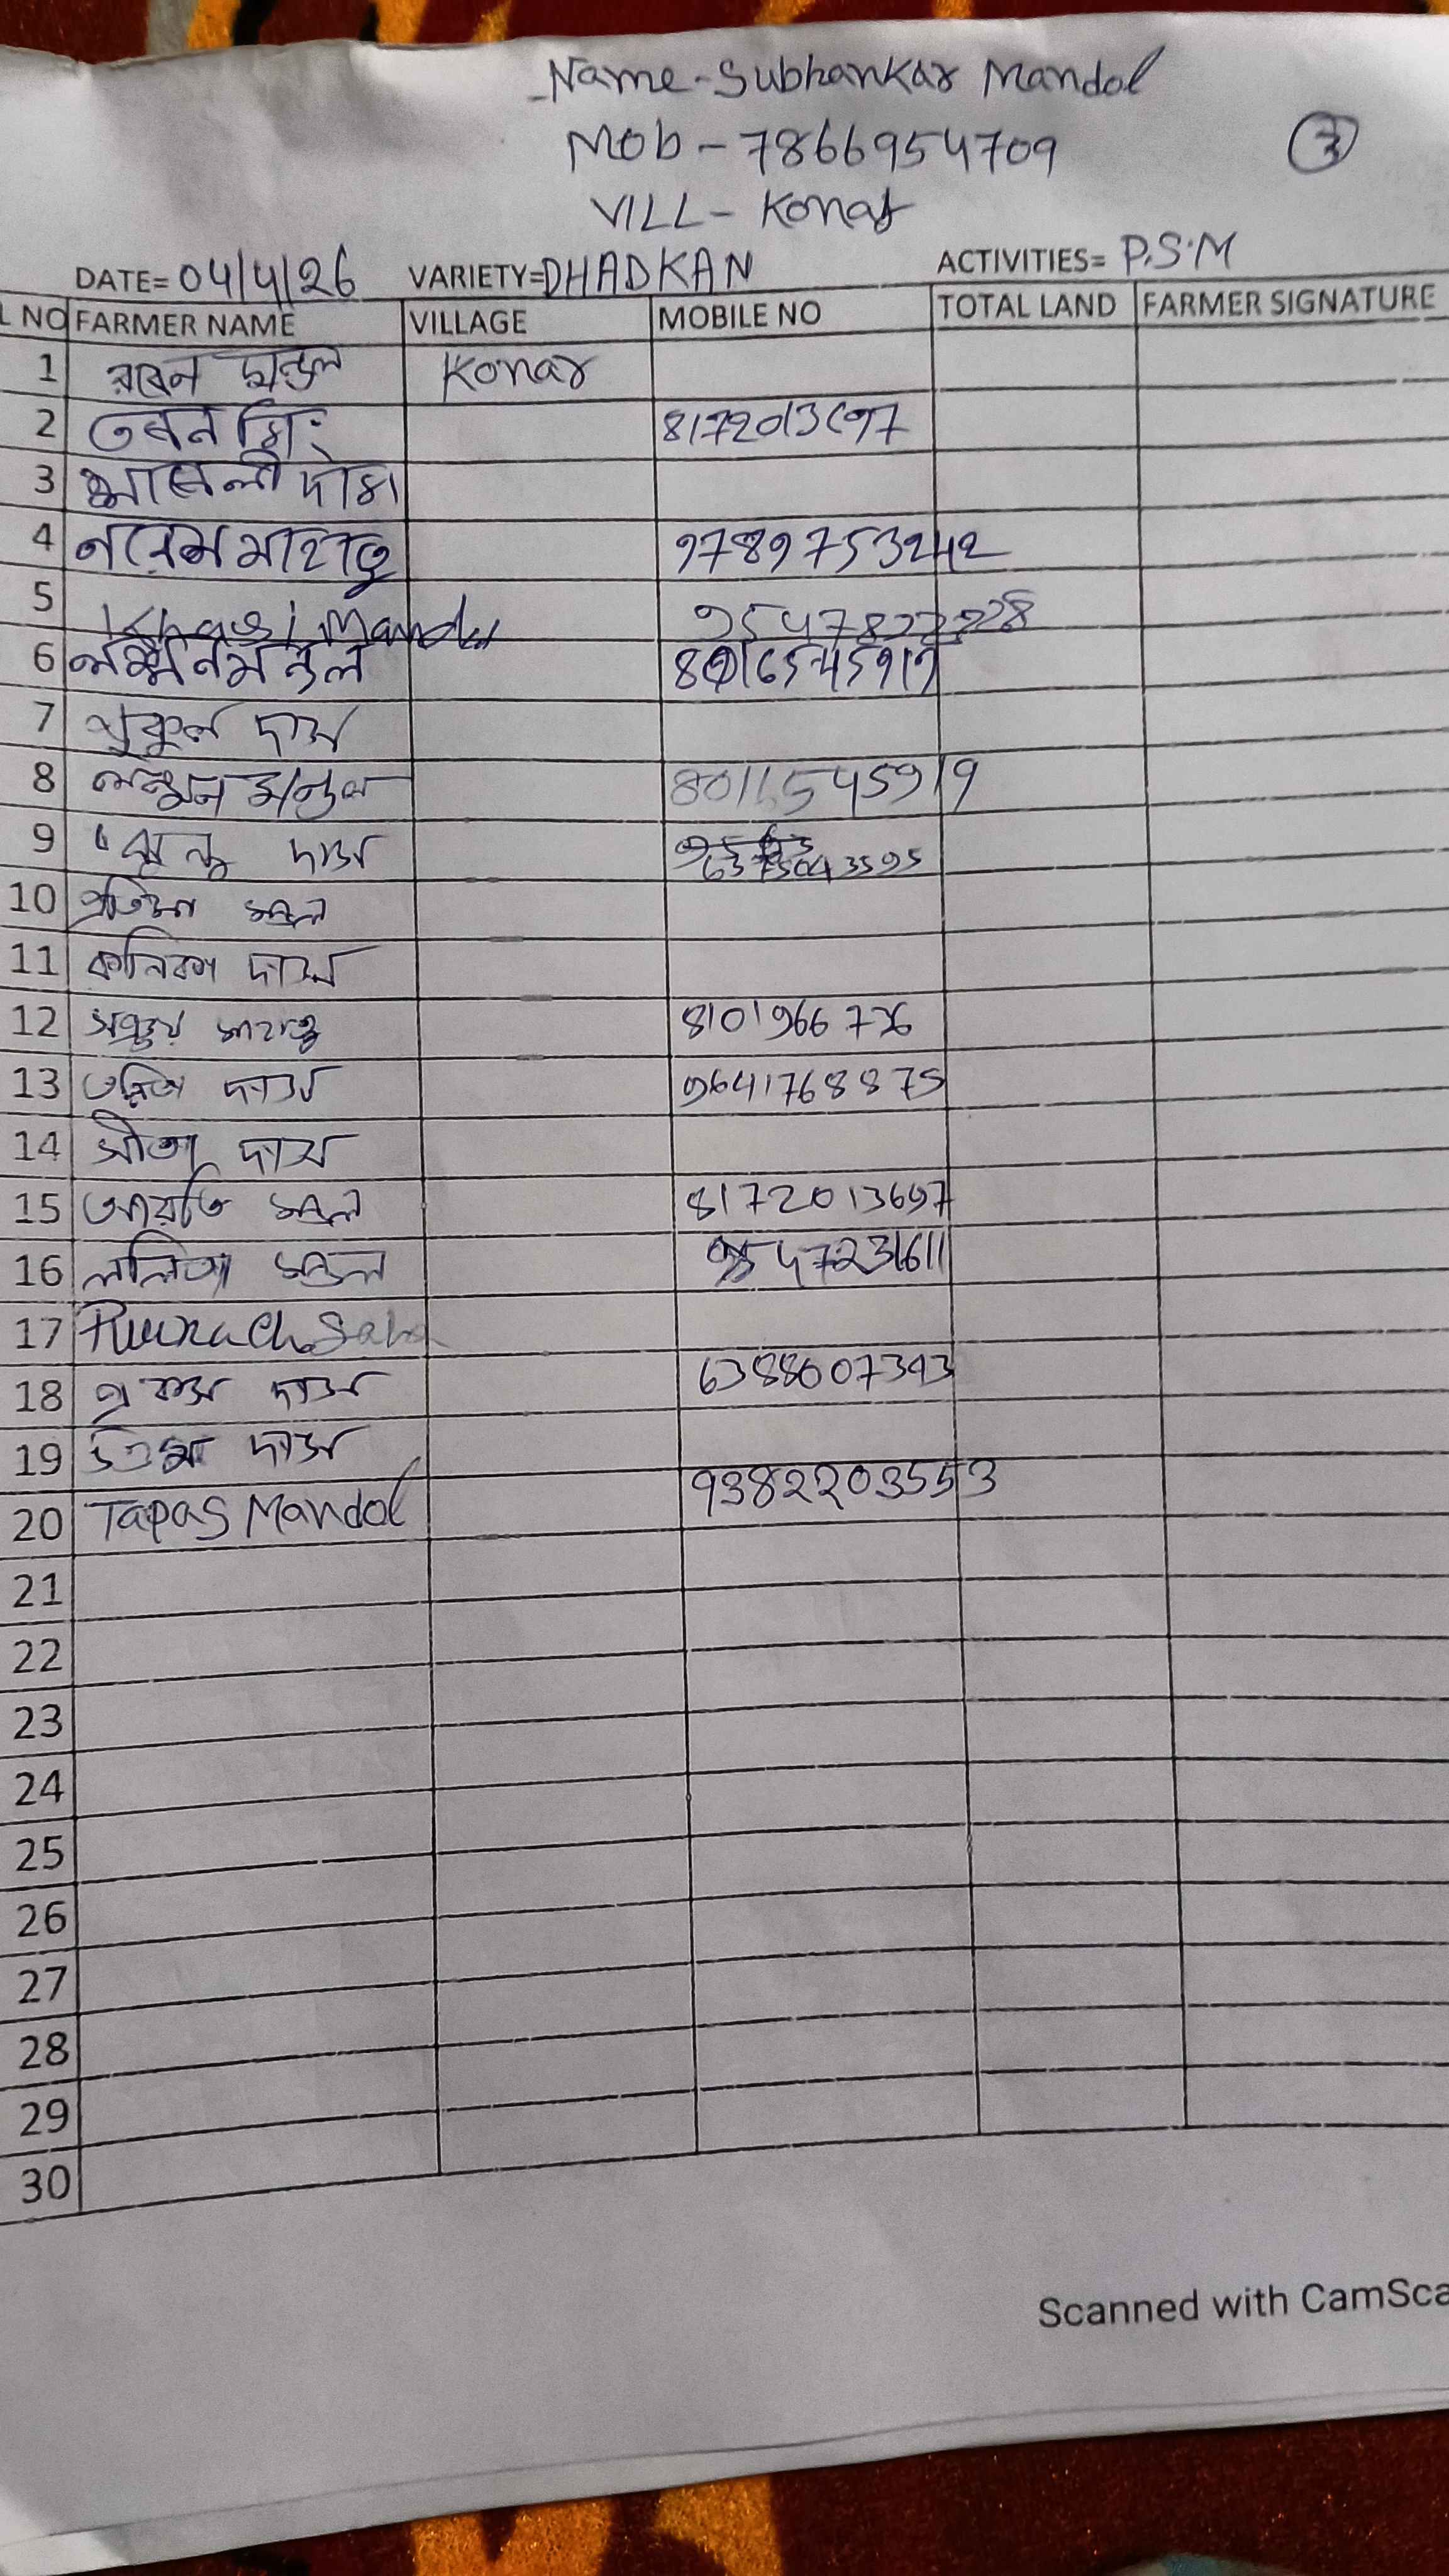 Name - Subhankar Mandal
Mob - 7866954709
3
VILL - Konar
DATE= 04/4/26 VARIETY=DHADKAN ACTIVITIES= P.S.M
L NO FARMER NAME VILLAGE MOBILE NO TOTAL LAND FARMER SIGNATURE
1 মন্ডল Konar
2 8172013697
3 দাস
4 নরেন মাহাত 9789753242
5 Mandal
6 লক্ষন মন্ডল 8016545919
7 দাস
8 লক্ষন মন্ডল 8016545919
9 দাস
10 প্রতিমা মন্ডল
11 কনিকা দাস
12 সঞ্জয় মাহাত 8101966776
13 দাস 9641768875
14 সীতা দাস
15 আরতি মন্ডল 8172013697
16 ললিতা মন্ডল 9547231611
17
18 দাস 6388607343
19 দাস
20 Tapas Mandal 9382203553
21
22
23
24
25
26
27
28
29
30
Scanned with CamSca